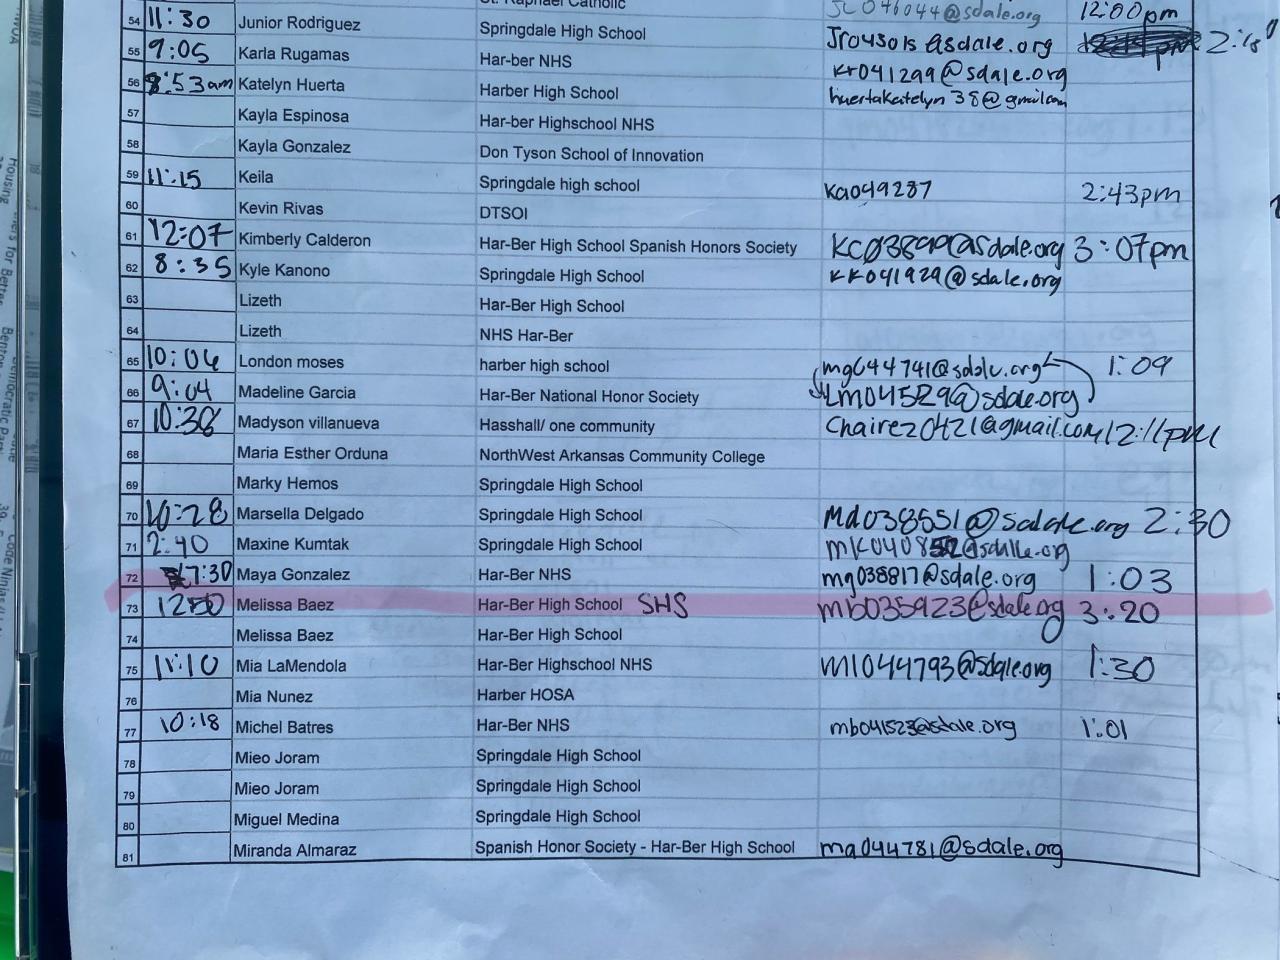 St. Raphael Catholic JC046044@sdale.org 12:00pm
54 11:30 Junior Rodriguez Springdale High School Jr043015@sdale.org 2:18
55 9:05 Karla Rugamas Har-ber NHS kr041299@sdale.org
56 8:53am Katelyn Huerta Harber High School huertakatelyn38@gmail.com
57 Kayla Espinosa Har-ber Highschool NHS
58 Kayla Gonzalez Don Tyson School of Innovation
59 11:15 Keila Springdale high school ka049287 2:43pm
60 Kevin Rivas DTSOI
61 12:07 Kimberly Calderon Har-Ber High School Spanish Honors Society KC03899@sdale.org 3:07pm
62 8:35 Kyle Kanono Springdale High School kk041929@sdale.org
63 Lizeth Har-Ber High School
64 Lizeth NHS Har-Ber
65 10:06 London moses harber high school mg644741@sdale.org 1:09
66 9:04 Madeline Garcia Har-Ber National Honor Society Lm04529@sdale.org
67 10:38 Madyson villanueva Hasshall/ one community Chairez0421@gmail.com 12:11pm
68 Maria Esther Orduna NorthWest Arkansas Community College
69 Marky Hemos Springdale High School
70 10:28 Marsella Delgado Springdale High School Md038551@sdale.org 2:30
71 2:40 Maxine Kumtak Springdale High School
72 7:30 Maya Gonzalez Har-Ber NHS mg038817@sdale.org 1:03
73 Melissa Baez Har-Ber High School SHS mb035923@sdale.org 3:20
74 Melissa Baez Har-Ber High School
75 11:10 Mia LaMendola Har-Ber Highschool NHS ml044793@sdale.org 1:30
76 Mia Nunez Harber HOSA
77 10:18 Michel Batres Har-Ber NHS mb041523@sdale.org 1:01
78 Mieo Joram Springdale High School
79 Mieo Joram Springdale High School
80 Miguel Medina Springdale High School
81 Miranda Almaraz Spanish Honor Society - Har-Ber High School ma044781@sdale.org